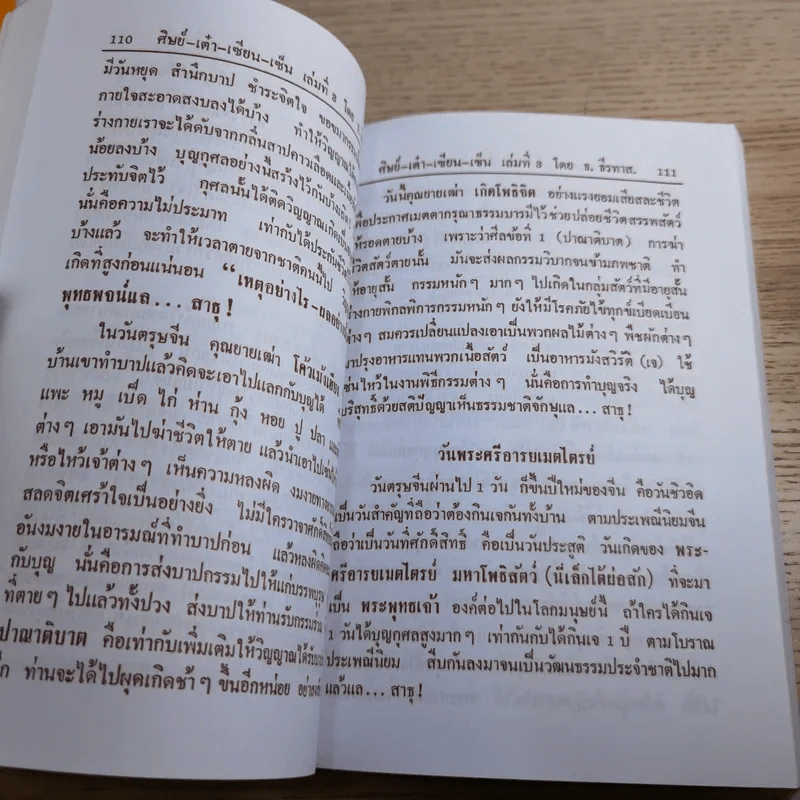 110 ศิษย์–เต๋า–เซียน–เซ็น เล่มที่ 3 โดย
มีวันหยุด สำนึกบาป ชำระจิตใจ ขอขมา
กายใจสะอาดสงบลงได้บ้าง ทำให้วิญญาณ
ร่างกายเราจะได้ดับจากกลิ่นสาปคาวเลือดและ
น้อยลงบ้าง บุญกุศลอย่างนี้สร้างไว้กันบ้างเถิด!
ประทับจิตไว้ กุศลนั้นได้ติดวิญญาณเกิด
นั่นคือความไม่ประมาท เท่ากับได้ประกันชีวิต
บ้างแล้ว จะทำให้เวลาตายจากชาติคนนี้ไป
เกิดที่สูงก่อนแน่นอน “เหตุอย่างไร–ผลอย่าง
พุทธพจน์แล... สาธุ!
ในวันตรุษจีน คุณยายเฒ่า โค้วเม่งเ
บ้านเขาทำบาปแล้วคิดจะเอาไปแลกกับบุญได้
แพะ หมู เป็ด ไก่ ห่าน กุ้ง หอย ปู ปลา
ต่างๆ เอามันไปฆ่าชีวิตให้ตาย แล้วนำเอาไปเซ่น
หรือไหว้เจ้าต่างๆ เห็นความหลงผิด งมงาย
สลดจิตเศร้าใจเป็นอย่างยิ่ง ไม่มีใครวาจาศักดิ์
อันงมงายในอารมณ์ที่ทำบาปก่อน แล้วหลงผิดคิด
กับบุญ นั่นคือการส่งบาปกรรมไปให้แก่บรรพบุรุษ
ที่ตายๆ ไปแล้วทั้งปวง ส่งบาปให้ท่านรับกรรม
ปาณาติบาต คือเท่ากับเพิ่มเติมให้วิญญาณได้รับ
ก ท่านจะได้ไปผุดเกิดช้าๆ ขึ้นอีกหน่อย อย่าง
ศิษย์–เต๋า–เซียน–เซ็น เล่มที่ 3 โดย ธ. ธีรทาส. 111
วันนี้คุณยายเฒ่า เกิดโพธิจิต อย่างแรงยอมเสียสละชีวิต
เพื่อประกาศเมตตากรุณาธรรมบารมีไว้ช่วยปล่อยชีวิตสรรพสัตว์
ให้รอดตายบ้าง เพราะว่าศีลข้อที่ 1 (ปาณาติบาต) การฆ่า
ชีวิตสัตว์ตายนั้น มันจะส่งผลกรรมวิบากจนข้ามภพชาติ ทำ
ให้อายุสั้น กรรมหนักๆ มากๆ ไปเกิดในกลุ่มสัตว์ที่มีอายุสั้น
ร่างกายพิกลพิการกรรมหนักๆ ยังให้มีโรคภัยไข้ทุกข์เบียดเบียน
ต่างๆ สมควรเปลี่ยนแปลงเอาเป็นพวกผลไม้ต่างๆ พืชผักต่างๆ
มาปรุงอาหารแทนพวกเนื้อสัตว์ เป็นอาหารมังสวิรัติ (เจ) ใช้
เซ่นไหว้ในงานพิธีกรรมต่างๆ นั่นคือการทำบุญจริง ได้บุญ
บริสุทธิ์ด้วยสติปัญญาเห็นธรรมชาติจักษุแล... สาธุ!
วันพระศรีอารยเมตไตรย์
วันตรุษจีนผ่านไป 1 วัน ก็ขึ้นปีใหม่ของจีน คือวันชิวอิด
เป็นวันสำคัญที่ถือว่าต้องกินเจกันทั้งบ้าน ตามประเพณีนิยมจีน
ถือว่าเป็นวันที่ศักดิ์สิทธิ์ คือเป็นวันประสูติ วันเกิดของ พระ-
ศรีอารยเมตไตรย์ มหาโพธิสัตว์ (นี่เล็กไต้ย่อสัก) ที่จะมา
เป็น พระพุทธเจ้า องค์ต่อไปในโลกมนุษย์นี้ ถ้าใครได้กินเจ
1 วันได้บุญกุศลสูงมากๆ เท่ากันกับได้กินเจ 1 ปี ตามโบราณ
ประเพณีนิยม สืบกันลงมาจนเป็นวัฒนธรรมประจำชาติไปมาก
แล้วแล... สาธุ!